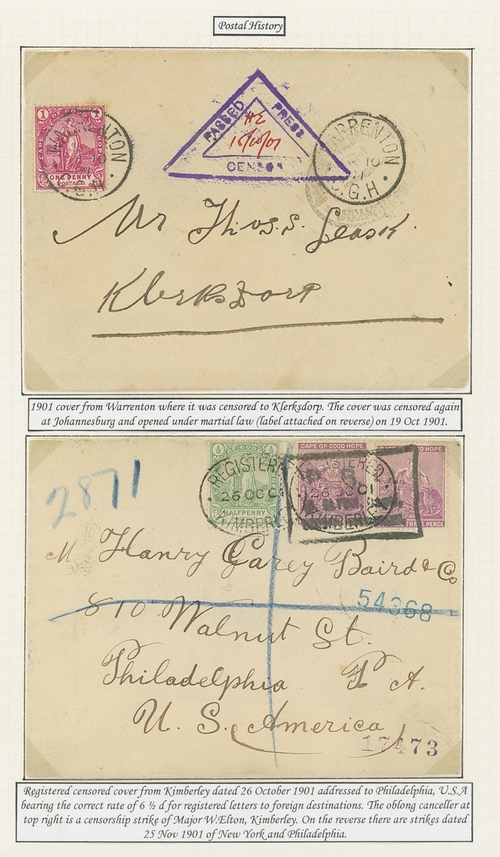 Postal History
ONE PENNY
POSTAGE
WARRENTON
C.G.H
PASSED PRESS
HE
15/10/01
CENSOR
WARRENTON
10
C.G.H.
Mr Thos. S. Leask.
Klerksdorp
1901 cover from Warrenton where it was censored to Klerksdorp. The cover was censored again
at Johannesburg and opened under martial law (label attached on reverse) on 19 Oct 1901.
2871
REGISTERED
26 OC
KIMBERLEY
HALFPENNY
CAPE OF GOOD HOPE
REGISTERED
26 OC 01
KIMBERLEY
HOPE
PENCE
M Hanry Carey Baird & Co
54368
810 Walnut St.
Philadelphia P A.
U. S. America
17473
Registered censored cover from Kimberley dated 26 October 1901 addressed to Philadelphia, U.S.A
bearing the correct rate of 6 ½ d for registered letters to foreign destinations. The oblong canceller at
top right is a censorship strike of Major W.Elton, Kimberley. On the reverse there are strikes dated
25 Nov 1901 of New York and Philadelphia.